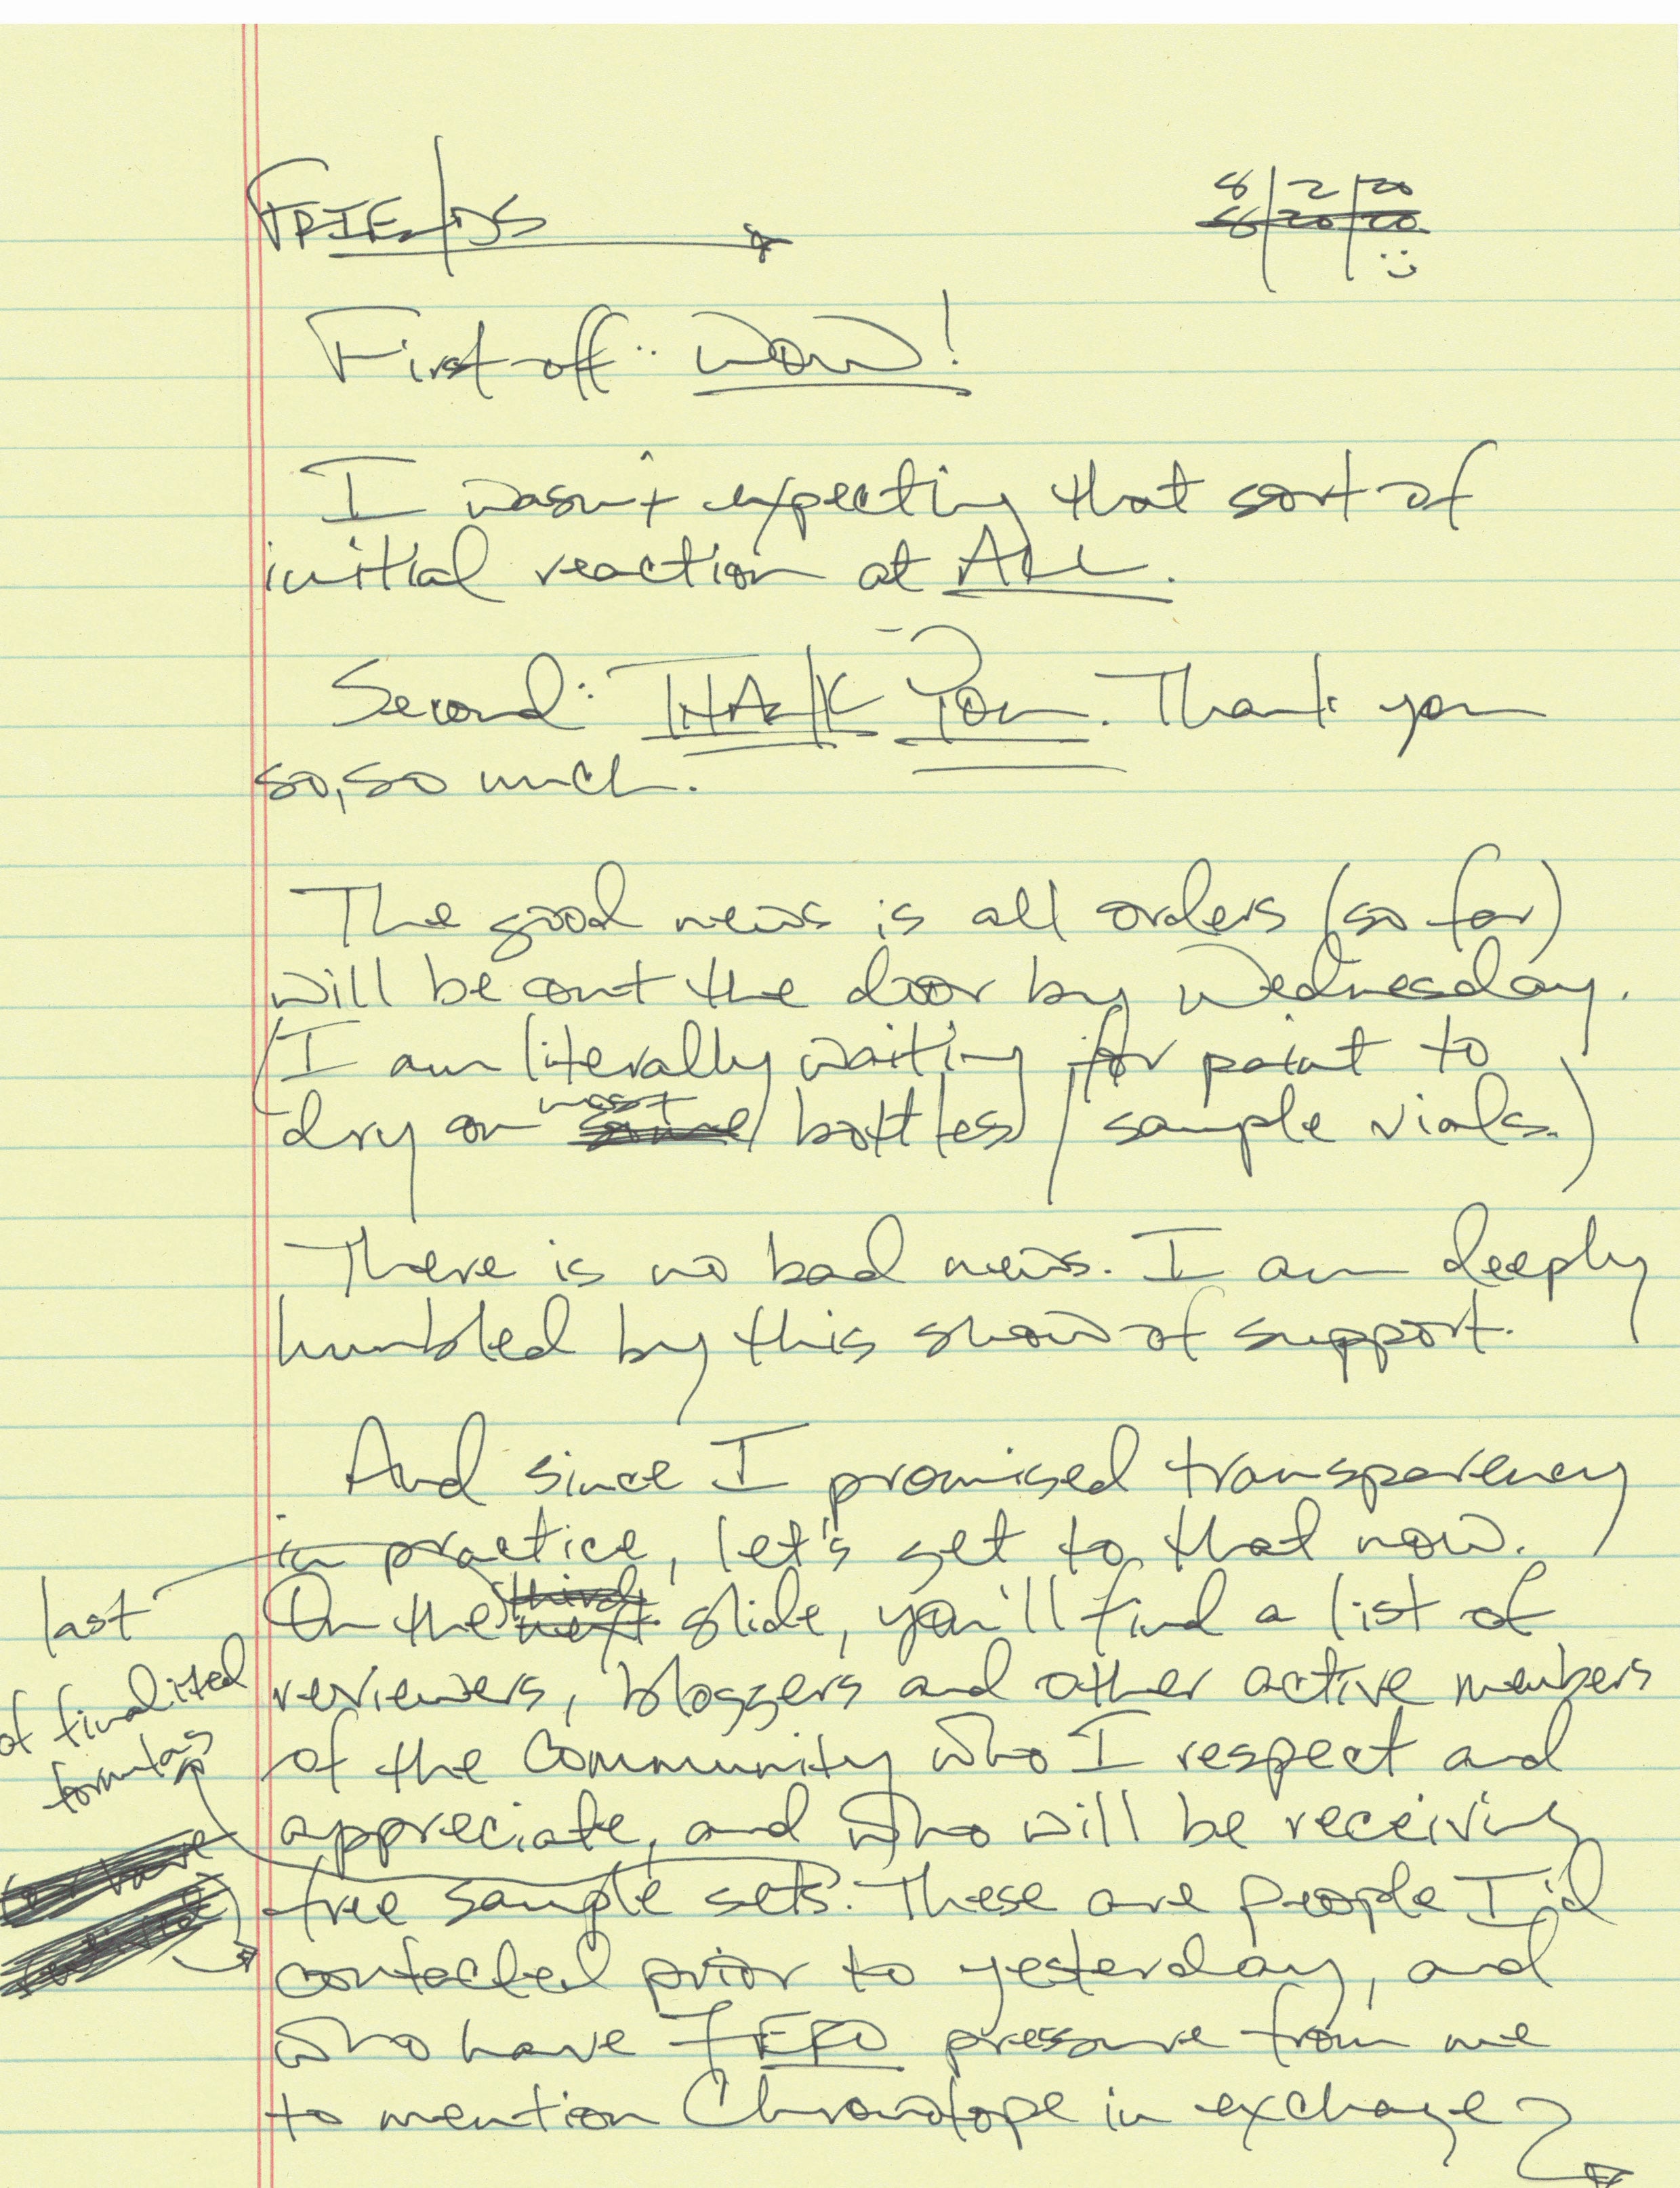 FRIENDS
8/2/20
8/20/20
First off: WOW!
I wasn't expecting that sort of
initial reaction at ALL.
Second: THANK YOU. Thank you
so, so much.
The good news is all orders (so far)
will be out the door by Wednesday.
(I am literally waiting for paint to
most
dry on some bottles/sample vials.)
There is no bad news. I am deeply
humbled by this show of support.
And since I promised transparency
in practice, let's get to that now.
last
third
On the next slide, you'll find a list of
reviewers, bloggers and other active members
of finalized
formulas
of the community who I respect and
appreciate, and who will be receiving
free sample sets. These are people I'd
contacted prior to yesterday, and
who have ZERO pressure from me
to mention Chronotope in exchange